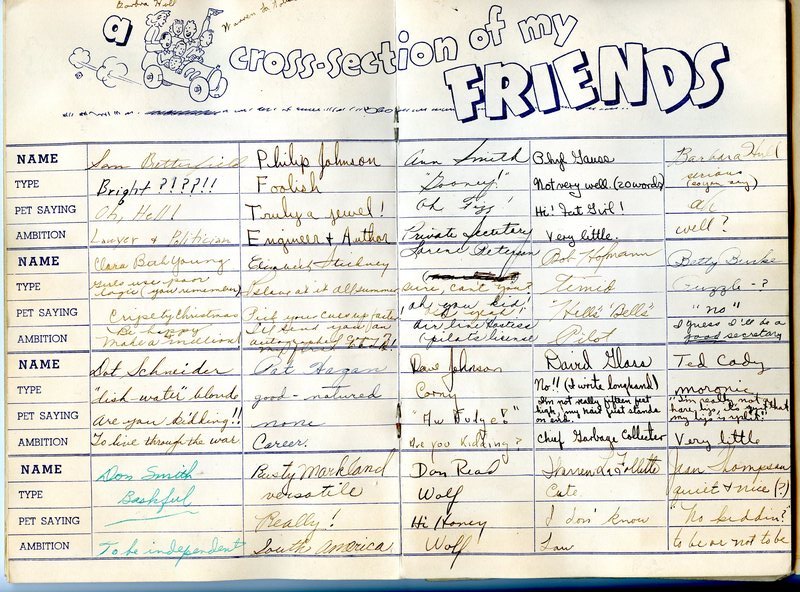 Barbra Hull
Warren La
a cross-section of my
FRIENDS
NAME Sam Butterfield Philip Johnson Ann Smith Phyl Gause Barbara Hull
TYPE Bright ????!! Foolish "Gooney!" Not very well. (20 words) serious (so you say)
PET SAYING Oh, Hell! Truly a jewel! Oh Hi! Fat Girl!
AMBITION Lawyer & Politician Engineer & Author Private Secretary Very little. well?
NAME Clara Beth Young Lorene Peterson Bob Hofmann Betty Burke
TYPE Girls use poor logic (you remember) it all summer sure, can't you? Timid Guzzle - ?
PET SAYING Cripety Christmas Pick your cues up faster! oh you kid! "Hell's Bells" "no"
AMBITION Be happy Make a million I'll send you an autographed Air Line Hostess (pilots license Pilot I guess I'll be a good secretary
NAME Dot Schneider Pat Hagan Dave Johnson David Glass Ted Cady
TYPE "dish-water" blonde good-natured Coony No!! (I write longhand) moronic
PET SAYING are you kidding!! none "Aw Fudge!" I'm not really fifteen feet high, my hair just stands on end. "I'm really not hare lip, its just that my lip is split"
AMBITION To live through the war. Career. Are you kidding? Chief Garbage Collector Very little
NAME Don Smith Rusty Markland Don Read Warren La Follette Jean Thompson
TYPE Bashful versatile Wolf Cute quiet & nice (?)
PET SAYING Really! Hi Honey I don' know "No kiddin?"
AMBITION To be independent South America Wolf Law to be or not to be